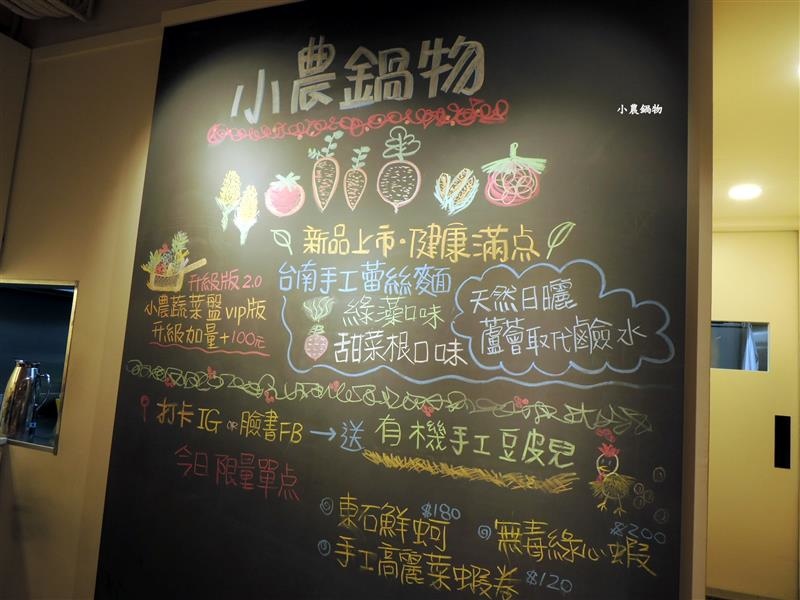 小農鍋物
小農鍋物
新品上市·健康滿点
升級版2.0
小農蔬菜盤vip版
升級加量+100元
台南手工蕾絲麵
綠藻口味
甜菜根口味
天然日曬
蘆薈取代鹵鹼水
打卡IG or 臉書FB → 送 有機手工豆皮兒
今日限量單点
東石鮮蚵 $180
無毒綠心蝦 $200
手工高麗菜蝦卷 $120